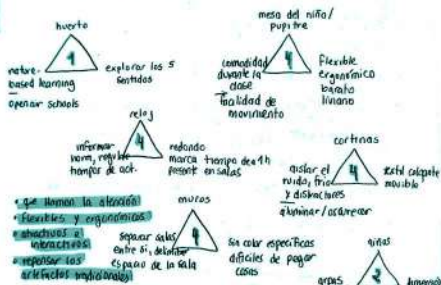 huerto
1
nature-
based learning
open air schools
explorar los 5
sentidos
mesa del niño/
pupitre
4
comodidad
durante la
clase
→ facilidad de
movimiento
Flexible
ergonómico
barato
liviano
reloj
4
informar
hora, regular
tiempos de act.
redondo
marca tiempo de a 1h
present en salas
cortinas
4
aislar el
ruido, frío
y distractores
iluminar/oscurecer
textil
movible
• que llaman la atención
• flexibles y ergonómicos
• atractivos e
interactivos
• repensar los
artefactos tradicionales
muros
4
separar salas
entre sí, delimitar
espacio de la sala
sin color específicas
difíciles de pegar
cosas
2